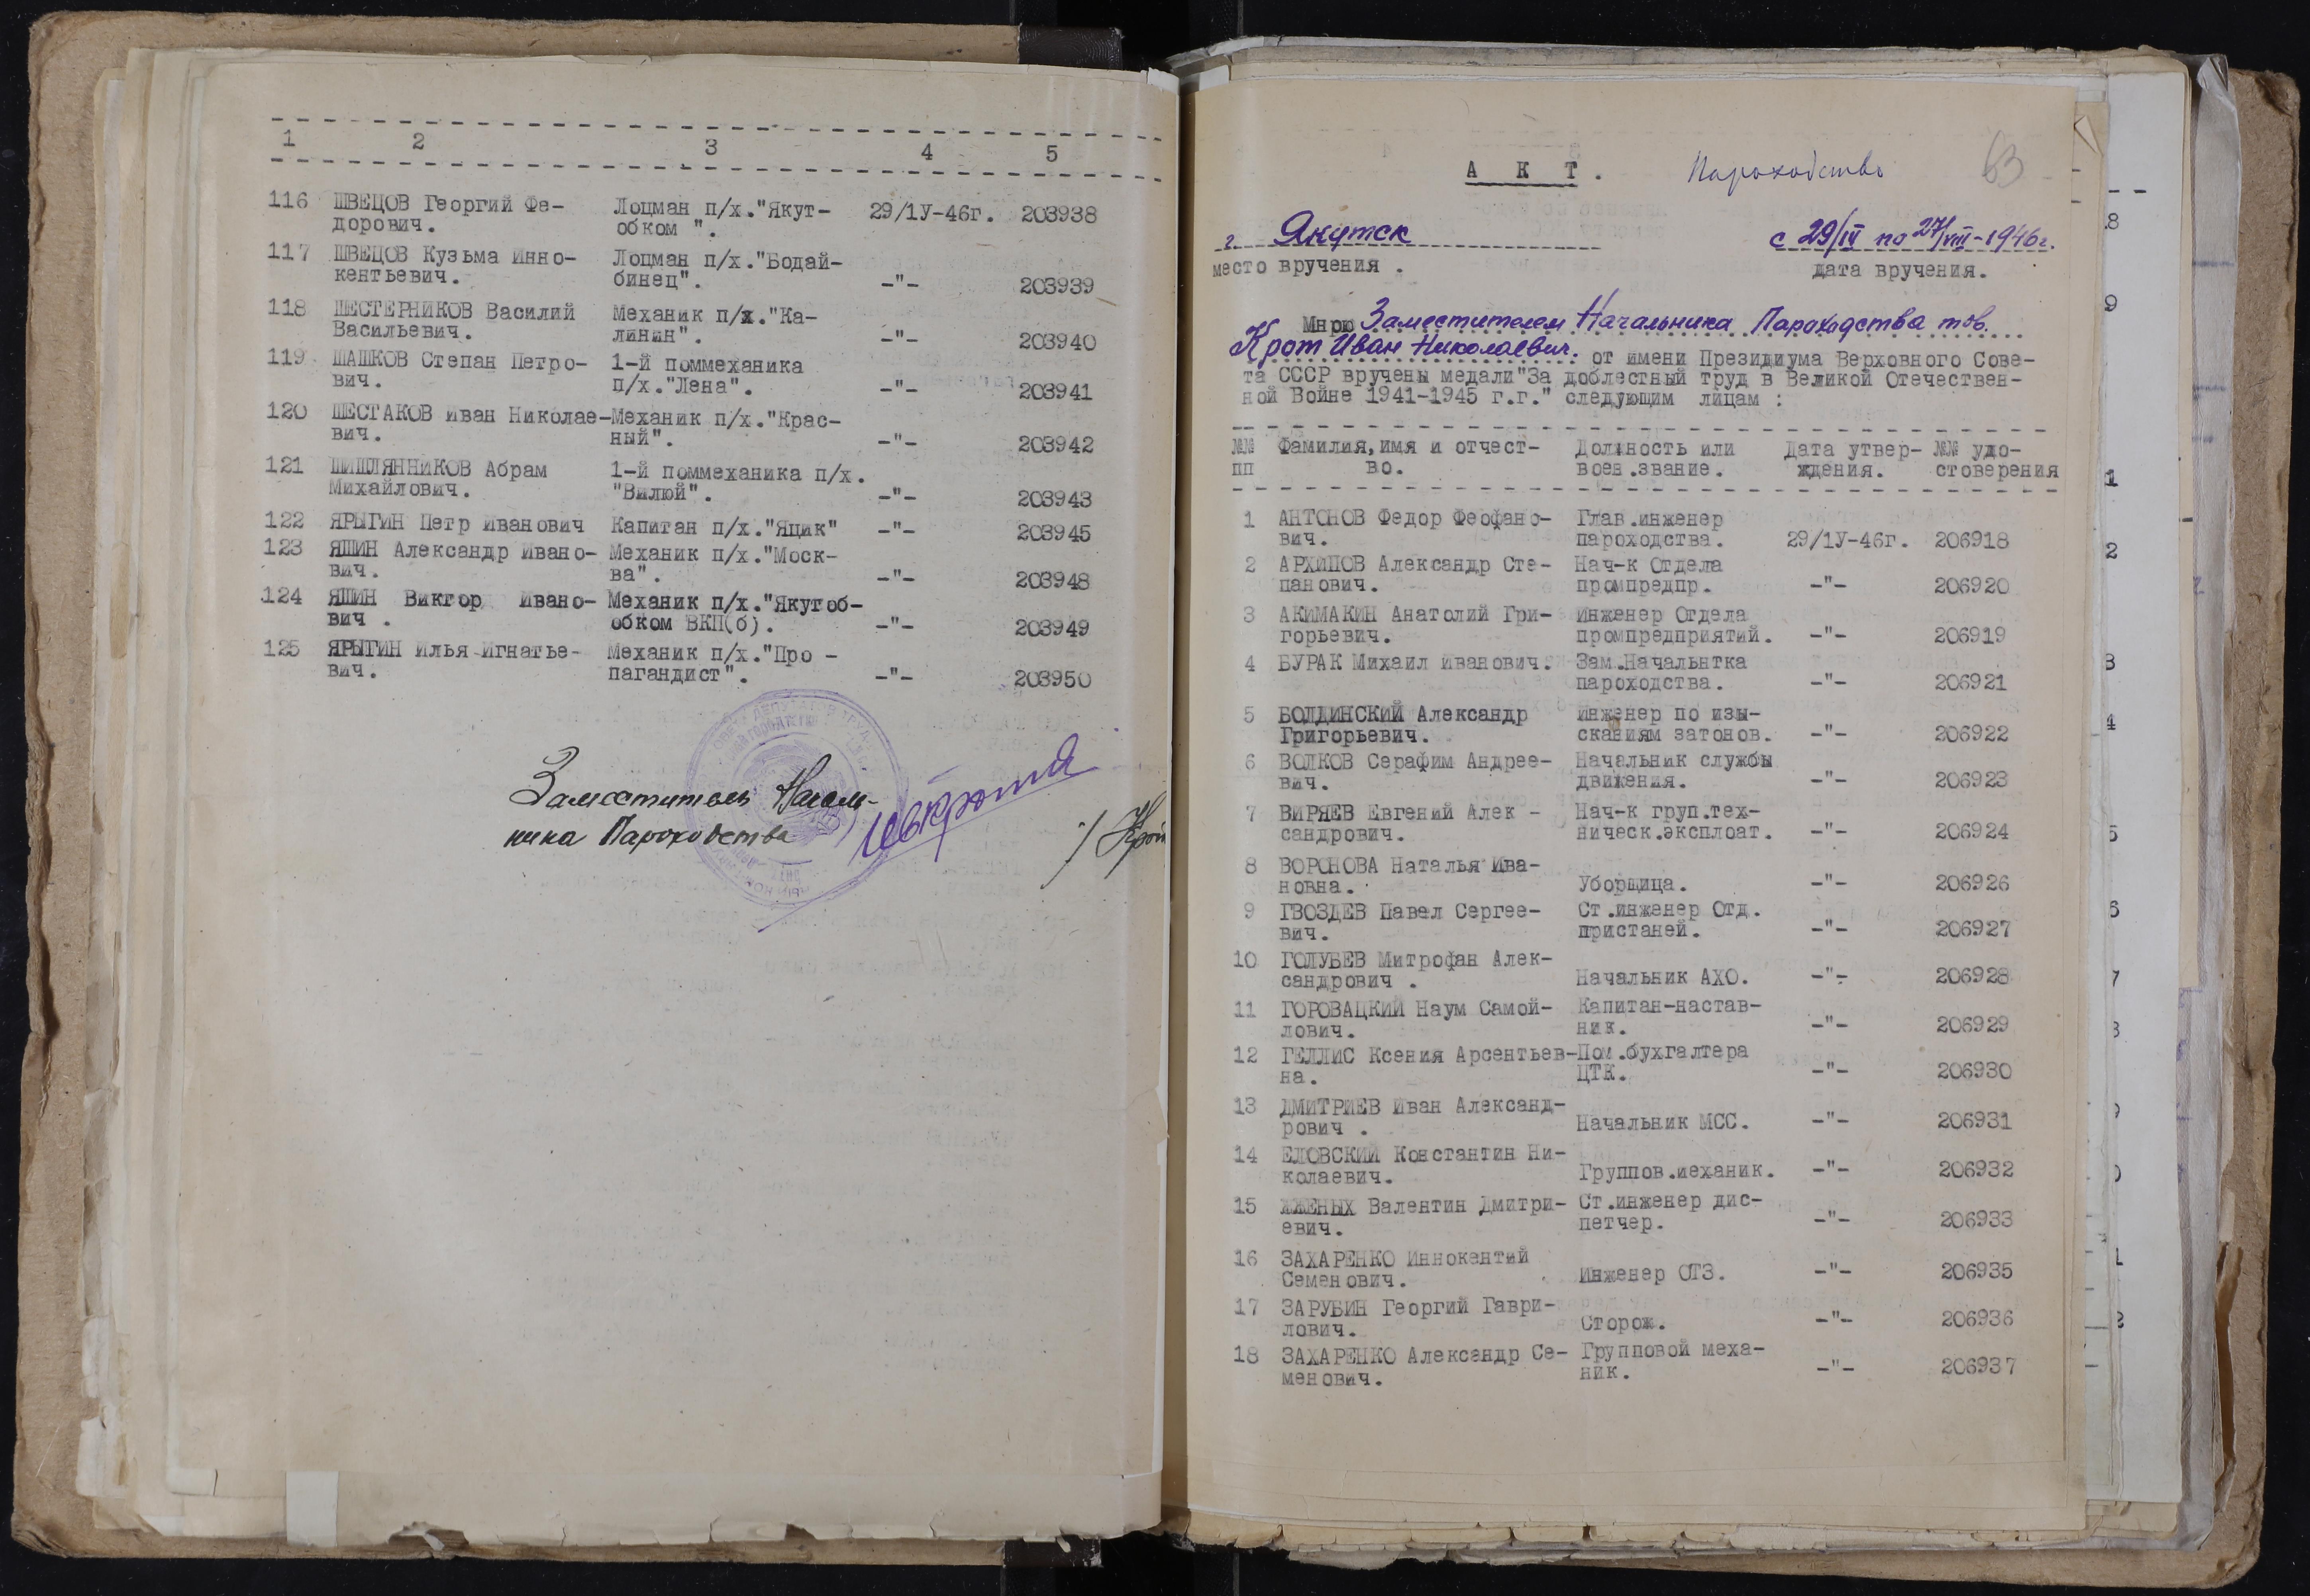 1 2 3 4 5
116 ШВЕЦОВ Георгий Фе- Лоцман п/х."Якут- 29/1У-46г. 203938
дорович. обком ".
117 ШВЕЦОВ Кузьма Инно- Лоцман п/х."Бодай-
кентьевич. бинец". -"- 203939
118 ШЕСТЕРНИКОВ Василий Механик п/х."Ка-
Васильевич. линин". -"- 203940
119 ШАШКОВ Степан Петро- 1-й поммеханика
вич. п/х."Лена". -"- 203941
120 ШЕСТАКОВ Иван Николае- Механик п/х."Крас-
вич. ный". -"- 203942
121 ШИШЛЯННИКОВ Абрам 1-й поммеханика п/х.
Михайлович. "Вилюй". -"- 203943
122 ЯРЫГИН Петр Иванович Капитан п/х."Яцик" -"- 203945
123 ЯШИН Александр Ивано- Механик п/х."Моск-
вич. ва". -"- 203948
124 ЯШИН Виктор Ивано- Механик п/х."Якутоб-
вич . обком ВКП(б). -"- 203949
125 ЯРЫГИН Илья Игнатье- Механик п/х."Про -
вич. пагандист". -"- 203950
Заместитель Началь-
ника Пароходства / Крот
А К Т . Пароходство 63
г. Якутск с 29/IV по 27/VIII-1946г.
место вручения . дата вручения.
Мною Заместителем Начальника Пароходства тов.
Крот Иван Николаевич. от имени Президиума Верховного Сове-
та СССР вручены медали"За доблестный труд в Великой Отечествен-
ной Войне 1941-1945 г.г." следующим лицам :
№№ Фамилия,имя и отчест- Должность или Дата утвер- №№ удо-
пп во. воен.звание. ждения. стоверения
1 АНТОНОВ Федор Феофано- Глав.инженер
вич. пароходства. 29/1У-46г. 206918
2 АРХИПОВ Александр Сте- Нач-к Отдела
панович. промпредпр. -"- 206920
3 АКИМАКИН Анатолий Гри- Инженер Отдела
горьевич. промпредприятий. -"- 206919
4 БУРАК Михаил Иванович. Зам.Начальнтка
пароходства. -"- 206921
5 БОЛДИНСКИЙ Александр Инженер по изы-
Григорьевич. сканиям затонов. -"- 206922
6 ВОЛКОВ Серафим Андрее- Начальник службы
вич. движения. -"- 206923
7 ВИРЯЕВ Евгений Алек - Нач-к груп.тех-
сандрович. ническ.эксплоат. -"- 206924
8 ВОРОНОВА Наталья Ива-
новна. Уборщица. -"- 206926
9 ГВОЗДЕВ Павел Сергее- Ст.инженер Отд.
вич. пристаней. -"- 206927
10 ГОЛУБЕВ Митрофан Алек-
сандрович . Начальник АХО. -"- 206928
11 ГОРОВАЦКИЙ Наум Самой- Капитан-настав-
лович. ник. -"- 206929
12 ГЕЛЛИС Ксения Арсентьев- Пом.бухгалтера
на. ЦТК. -"- 206930
13 ДМИТРИЕВ Иван Александ-
рович . Начальник МСС. -"- 206931
14 ЕЛОВСКИЙ Константин Ни-
колаевич. Группов.механик. -"- 206932
15 ЖЖЕНЫХ Валентин Дмитри- Ст.инженер дис-
евич. петчер. -"- 206933
16 ЗАХАРЕНКО Иннокентий
Семенович. Инженер ОТЗ. -"- 206935
17 ЗАРУБИН Георгий Гаври-
лович. Сторож. -"- 206936
18 ЗАХАРЕНКО Александр Се- Групповой меха-
менович. ник. -"- 206937